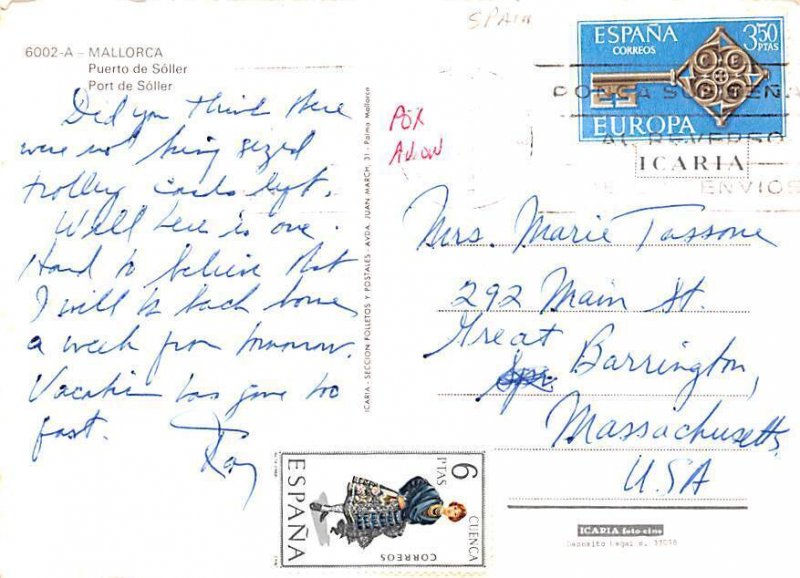 SPAIN
6002-A - MALLORCA
Puerto de Sóller
Port de Sóller
Did you think there
were not being sized
trolley cards left.
Well here is one.
Hard to believe that
I will be back home
a week from tomorrow.
Vacation has gone too
fast.
Ray
POR
AVION
ICARIA - SECCION FOLLETOS Y POSTALES - AVDA. JUAN MARCH, 31 - Palma Mallorca
ESPAÑA
CORREOS
3.50
PTAS
EUROPA
PONGA SU
AL REVERSO
ENVIOS
ICARIA
Mrs. Marie Tassone
292 Main St.
Great
Barrington,
Massachusetts
USA
6
PTAS
ESPAÑA
CUENCA
CORREOS
ICARIA foto-cine
Depósito Legal